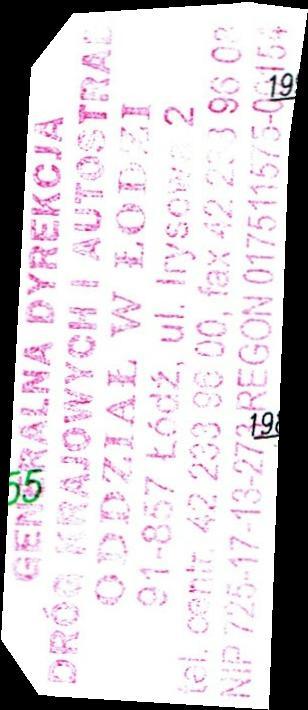 GENERALNA DYREKCJA
DRÓG KRAJOWYCH I AUTOSTRAD
ODDZIAŁ W ŁODZI
91-857 Łódź, ul. Irysowa 2
tel. centr. 42 233 96 00, fax 42 233 96 08
NIP 725-17-13-273 REGON 017511575-00154
55
198
19